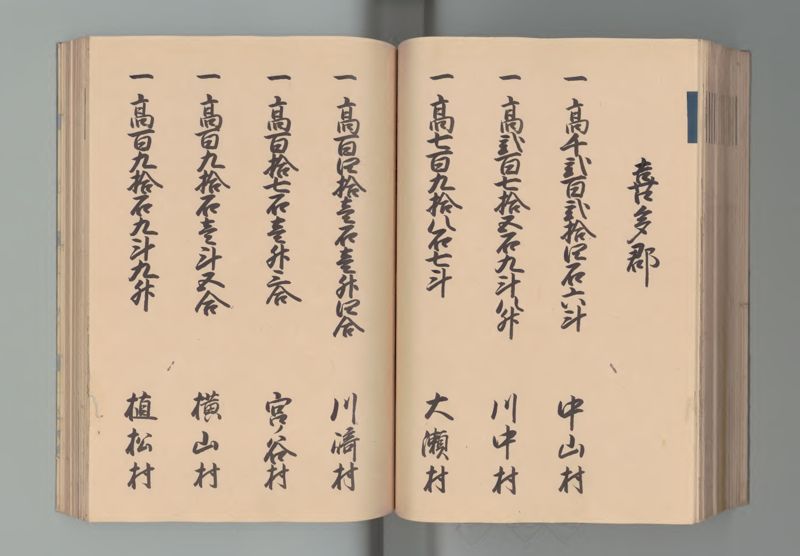 喜多郡
一 高千弐百弐拾四石六斗 中山村
一 高弐百七拾五石九斗八升 川中村
一 高七百九拾八石七斗 大瀬村
一 高百四拾壱石壱升四合 川﨑村
一 高百拾七石壱升三合 宮ノ谷村
一 高百九拾石壱斗五合 横山村
一 高百九拾石九斗九升 植松村